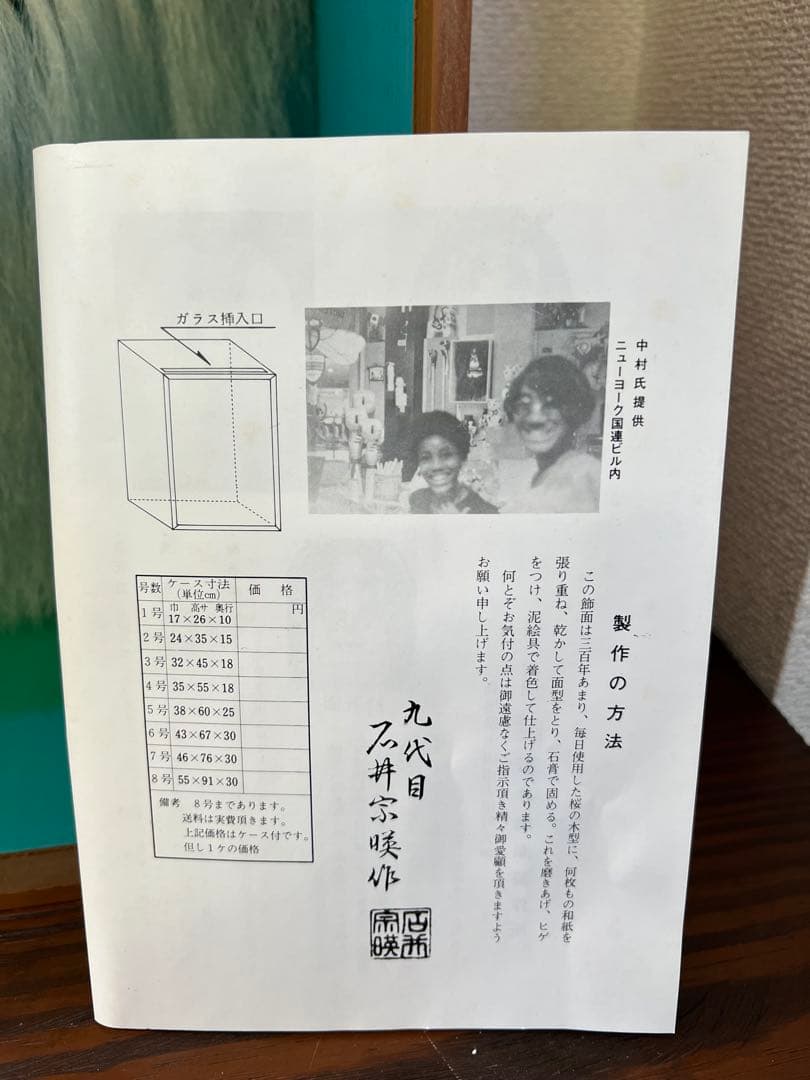 ガラス挿入口
中村氏提供
ニューヨーク国連ビル内
製作の方法
この飾面は三百年あまり、毎日使用した桜の木型に、何枚もの和紙を
張り重ね、乾かして面型をとり、石膏で固める。これを磨きあげ、ヒゲ
をつけ、泥絵具で着色して仕上げるのであります。
何とぞお気付の点は御遠慮なくご指示頂き精々御愛顧を頂きますよう
お願い申し上げます。
九代目
石井宗暎作
石井
宗暎
号数 ケース寸法(単位cm) 価格
1号 巾 高サ 奥行 17×26×10 円
2号 24×35×15
3号 32×45×18
4号 35×55×18
5号 38×60×25
6号 43×67×30
7号 46×76×30
8号 55×91×30
備考 8号まであります。
送料は実費頂きます。
上記価格はケース付です。
但し1ケの価格